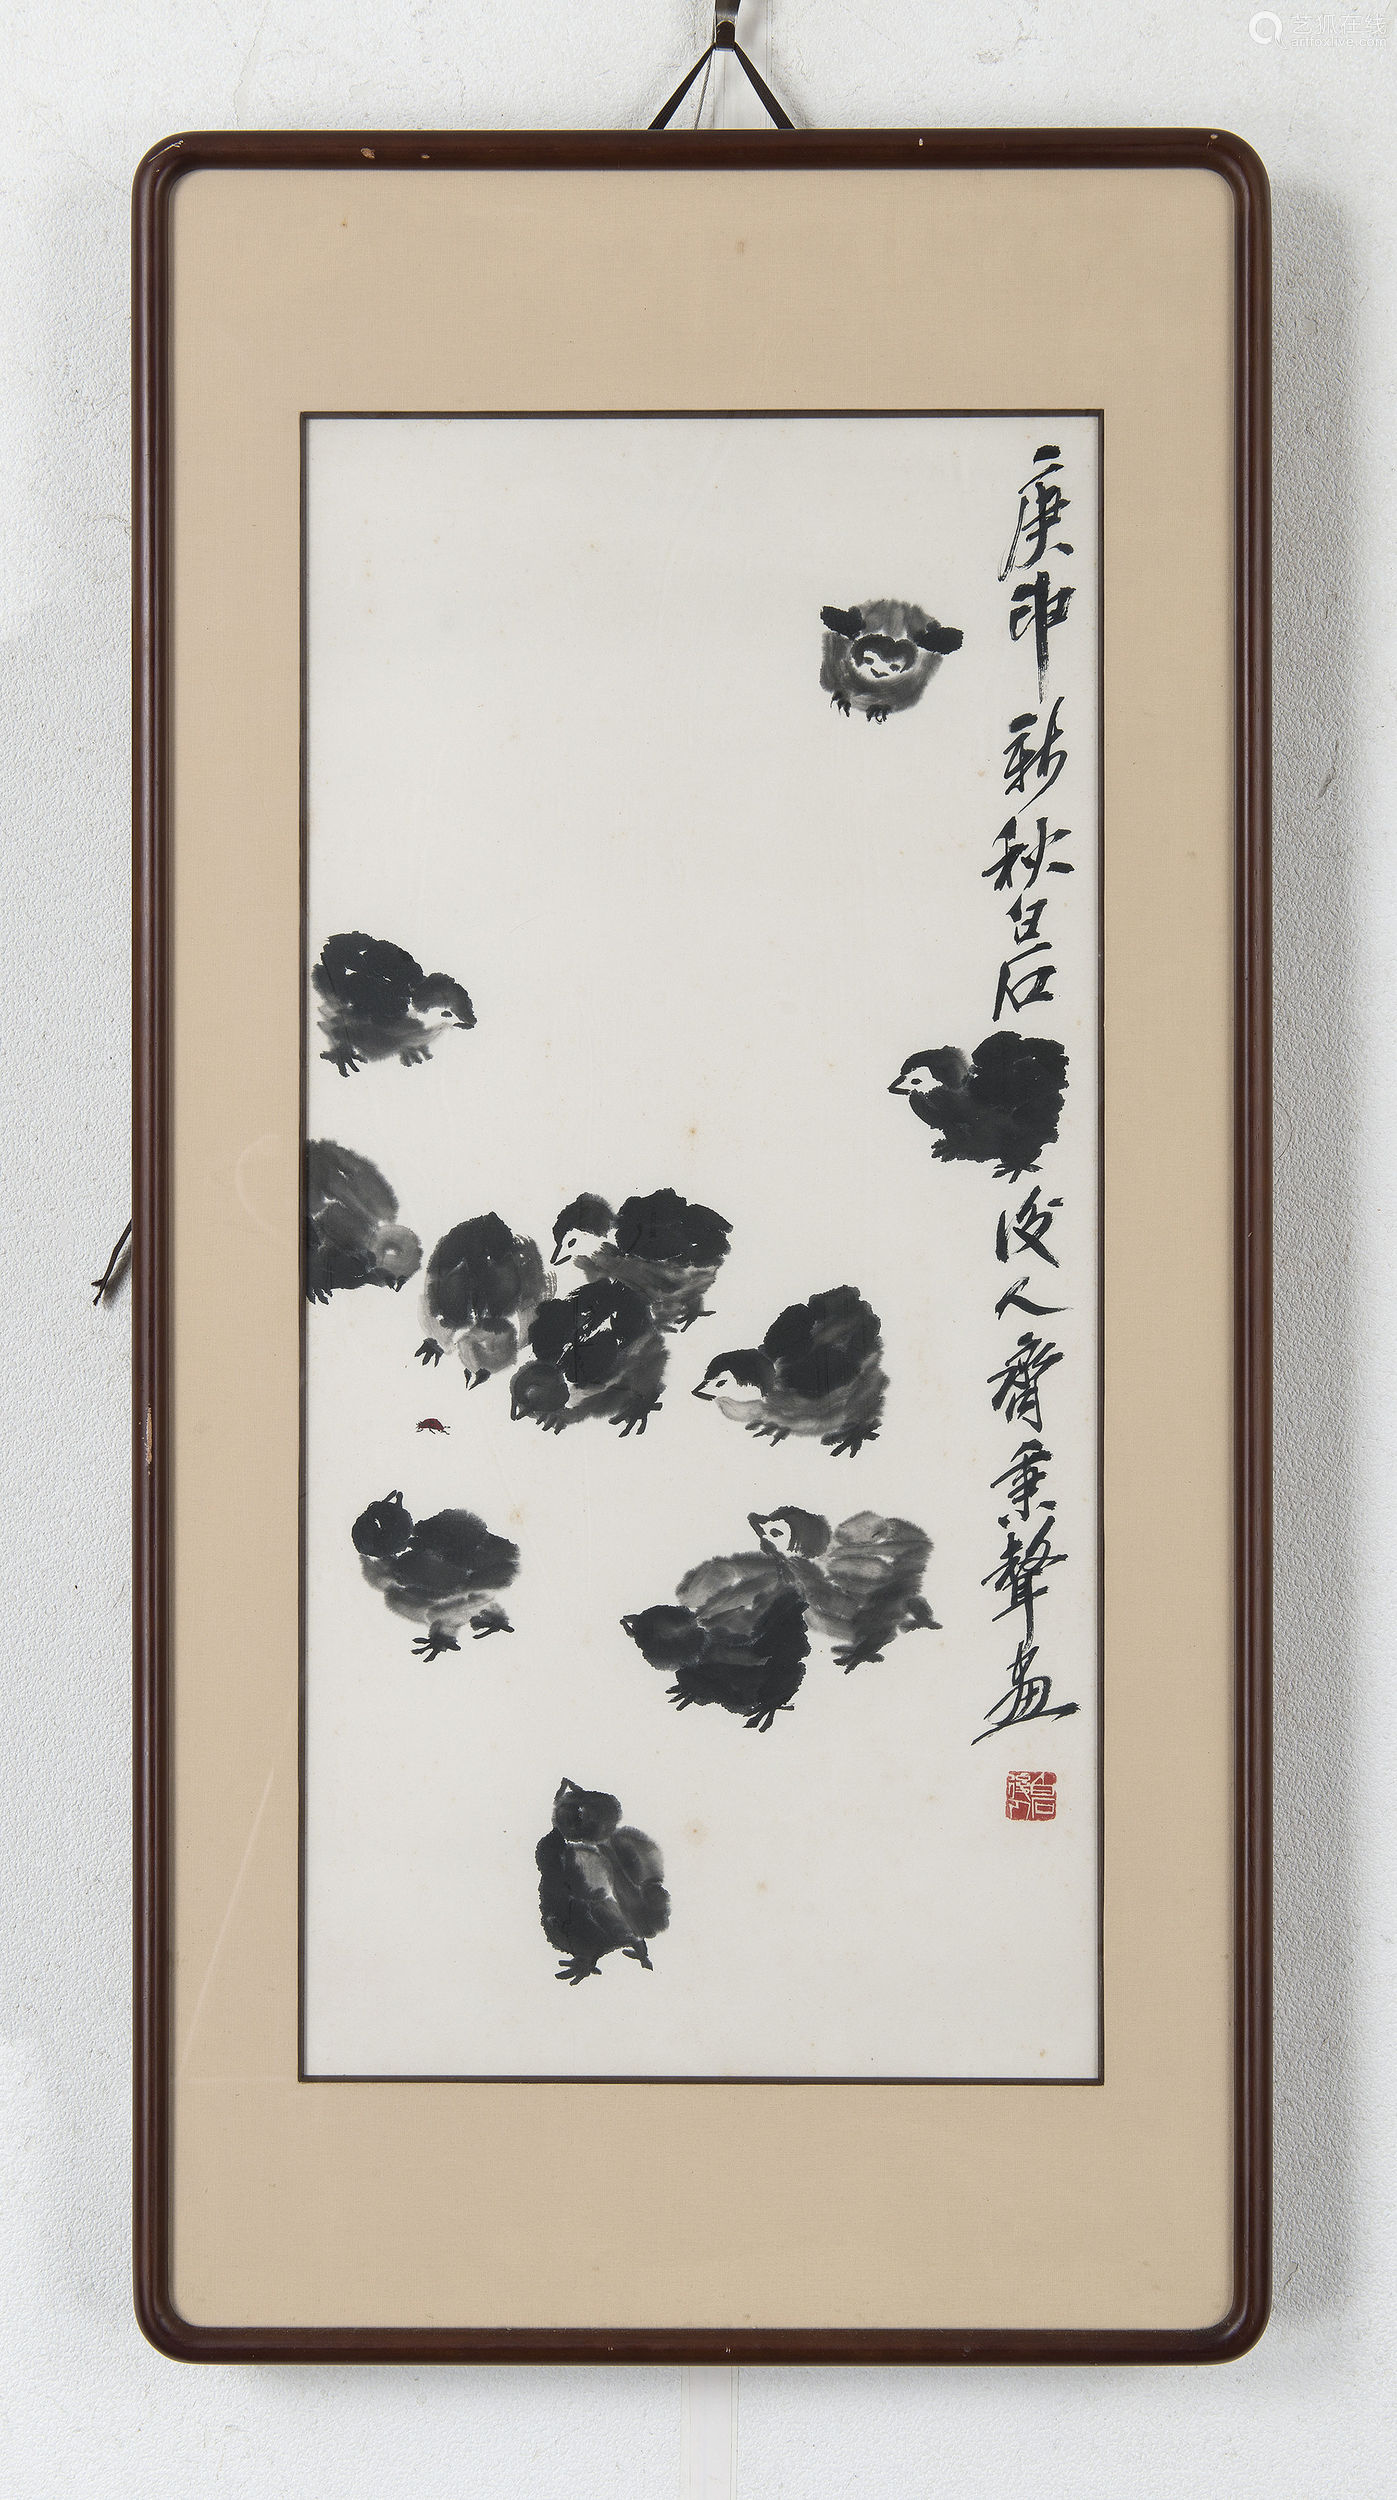 艺狐在线
artfoxlive.com
庚申新秋白石後人齊秉聲画
白石後人